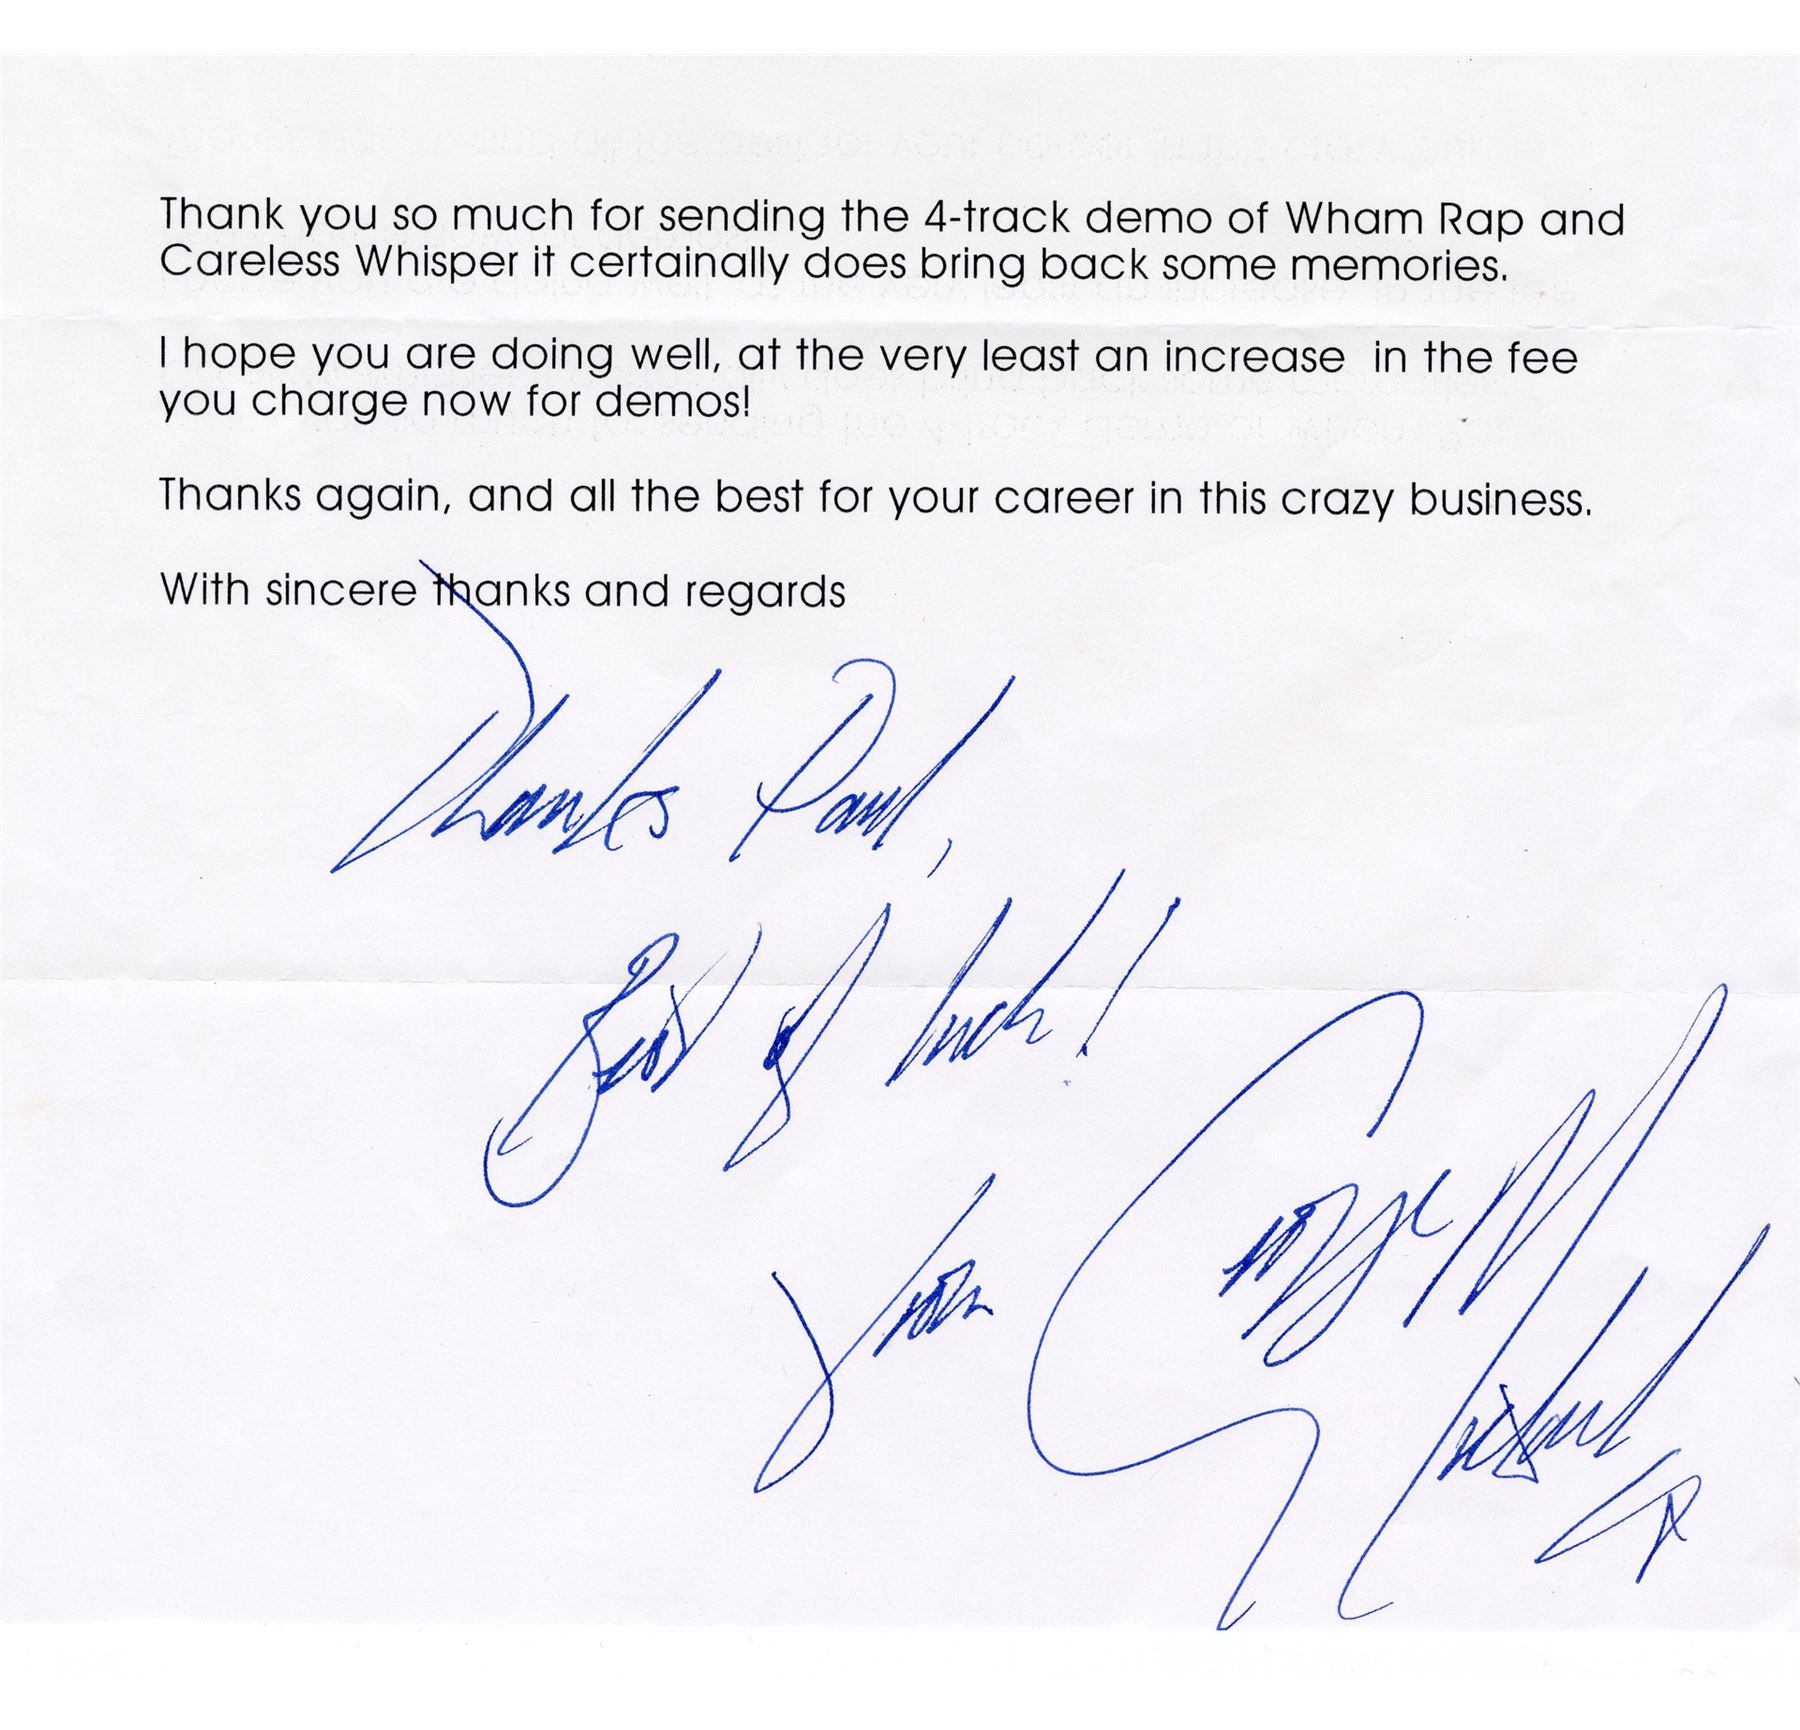 Thank you so much for sending the 4-track demo of Wham Rap and
Careless Whisper it certainally does bring back some memories.
I hope you are doing well, at the very least an increase in the fee
you charge now for demos!
Thanks again, and all the best for your career in this crazy business.
With sincere thanks and regards
Thanks Paul,
Best of luck!
from George
Michael